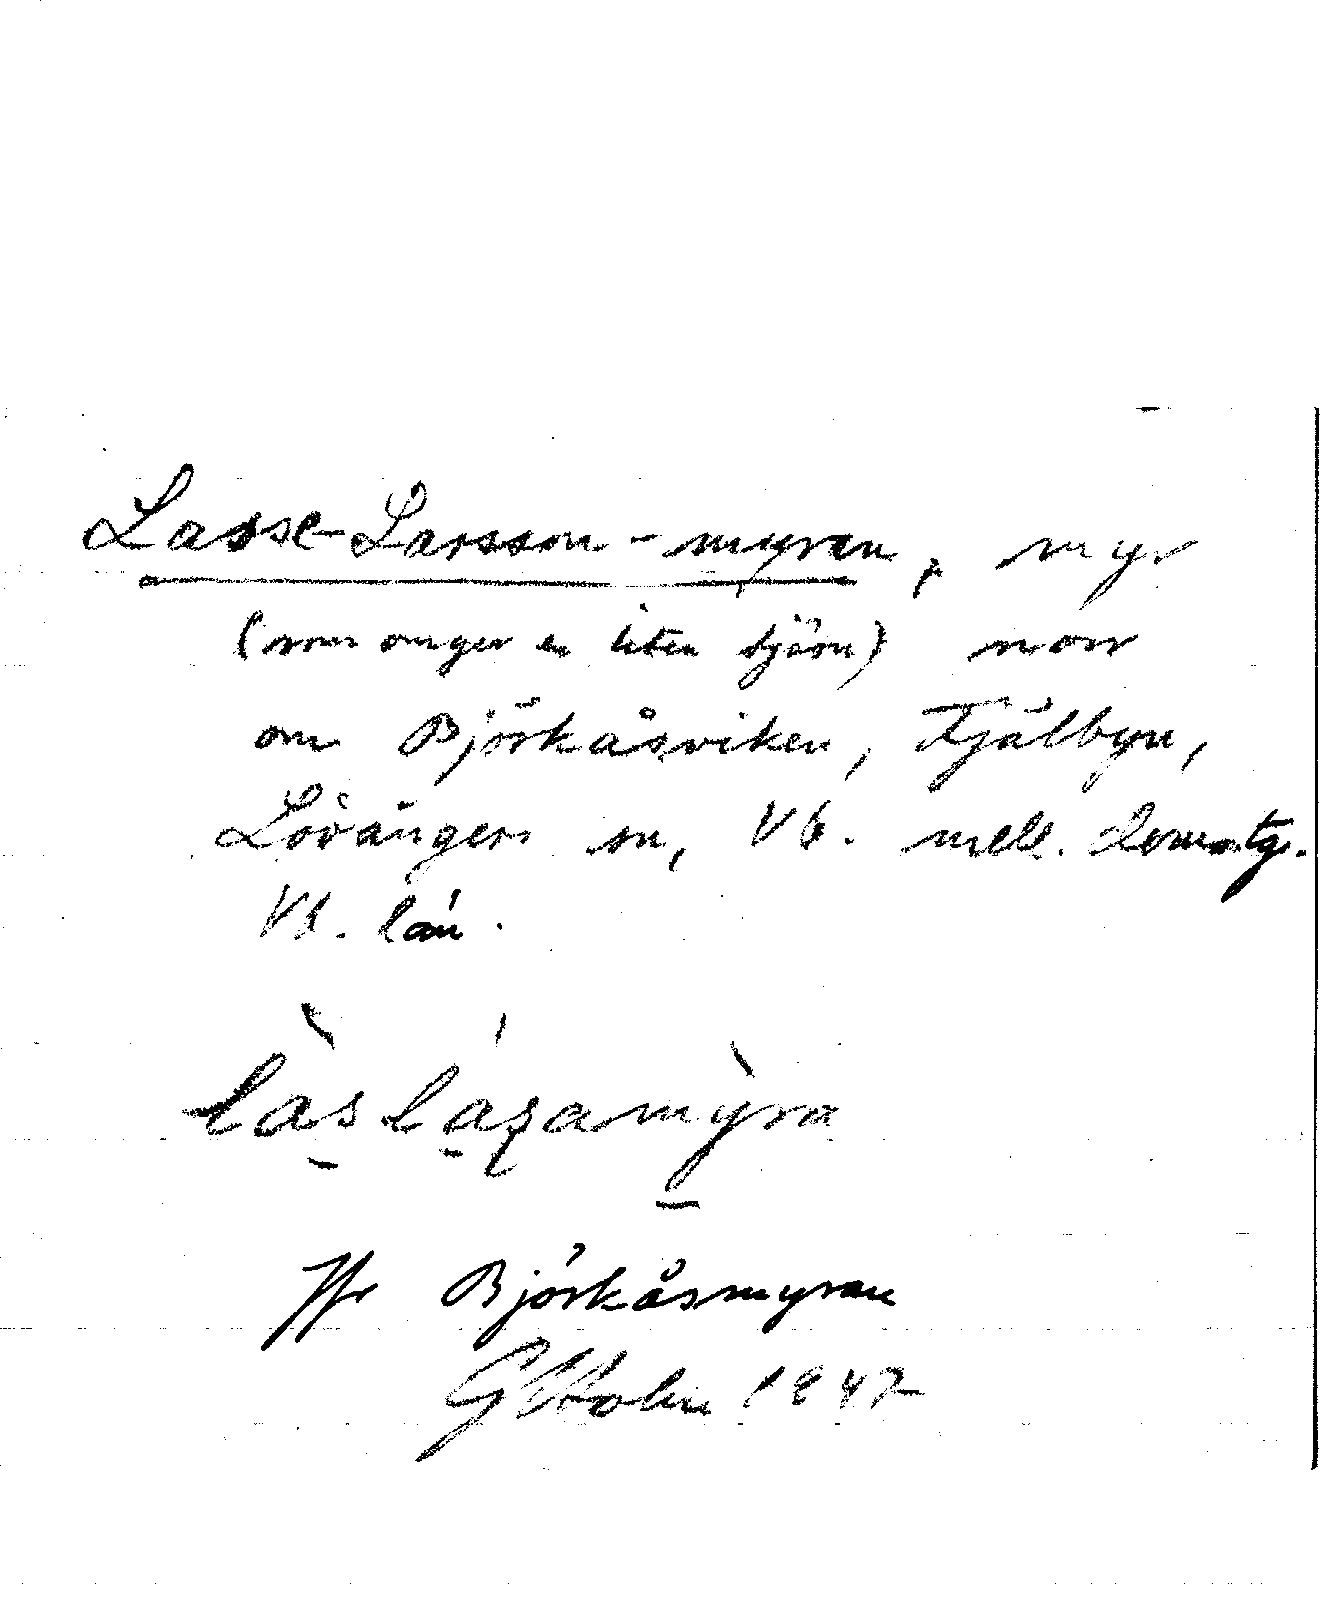 Lasse-Larsson-myran, myr
(som omger en liten tjärn) norr
om Björkåsviken, Fjälbyn,
Lövångers sn, Vb. mell. domstg.
Vb. län.
làslázamỳra
Jfr Björkåsmyran
GHolm 1947